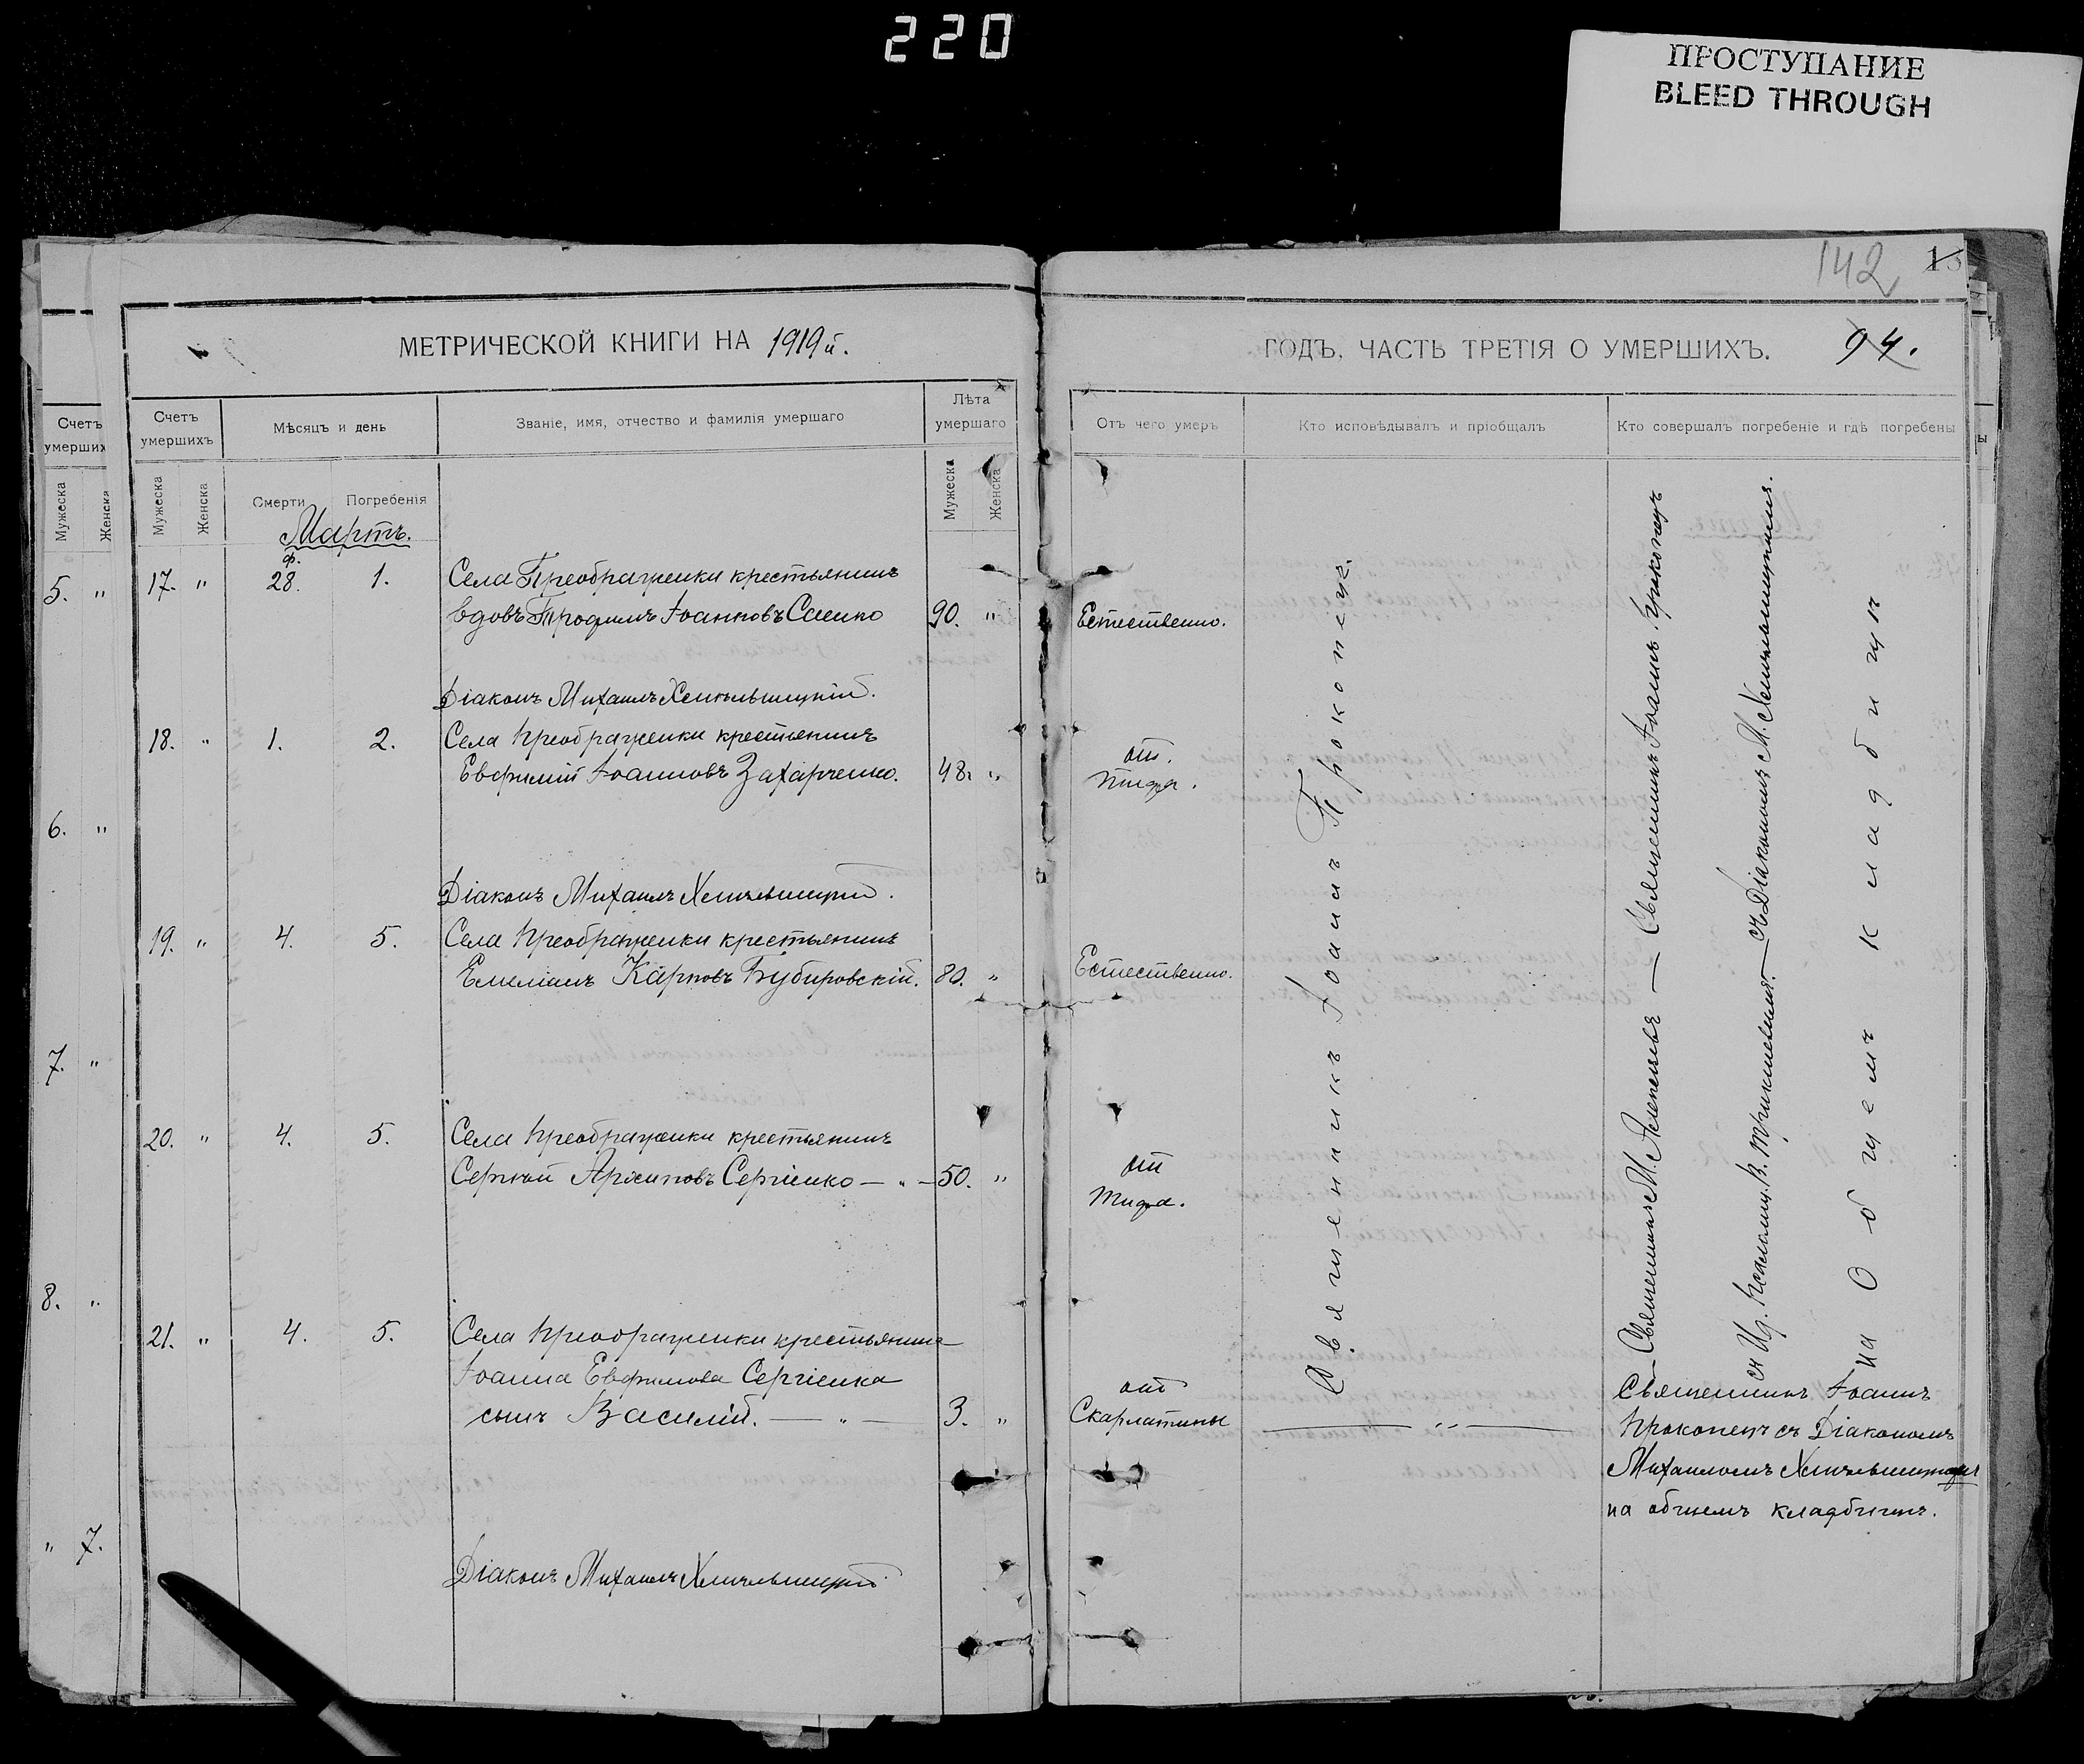 220
ПРОСТУПАНИЕ
BLEED THROUGH
142
13
МЕТРИЧЕСКОЙ КНИГИ НА 1919 й.
ГОДЪ, ЧАСТЬ ТРЕТІЯ О УМЕРШИХЪ. 94.
Счетъ умерших
Мужеска
Женска
5. "
6. "
7. "
8. "
" 7.
Счетъ умершихъ
Мѣсяцъ и день
Званіе, имя, отчество и фамилія умершаго
Лѣта умершаго
Отъ чего умеръ
Кто исповѣдывалъ и пріобщалъ
Кто совершалъ погребеніе и гдѣ погребены
ы
Мужеска
Женска
Смерти
Погребенія
Мужеска
Женска
Мартъ.
ф.
17. " 28. 1. Села Преображенки крестьянинъ
вдовъ Трофимъ Іоанновъ Саенко 90. " Естественно.
Діаконъ Михаилъ
18. " 1. 2. Села Преображенки крестьянинъ
Евфимій Іоанновъ Захарченко. 48. " от.
тифа.
Діаконъ Михаилъ
19. " 4. 5. Села Преображенки крестьянинъ
Емеліанъ Карповъ Бубировскій. 80. " Естественно.
20. " 4. 5. Села Преображенки крестьянинъ
Сергій Архиповъ Сергіенко — " — 50. " от
тифа.
21. " 4. 5. Села Преображенки крестьянина
Іоанна Евфимова Сергіенка
сынъ Василій. — " — 3. " от
Скарлатины — " —
Діаконъ Михаилъ
Священникъ Іоаннъ Прокопец.
Священникъ М. — Священникъ Іоаннъ Прокопецъ
съ Псаломщ. В. — съ Діакономъ М.
на Общемъ кладбищѣ
Священникъ Іоаннъ
Прокопецъ съ Діакономъ
Михаиломъ
на общемъ кладбищѣ.